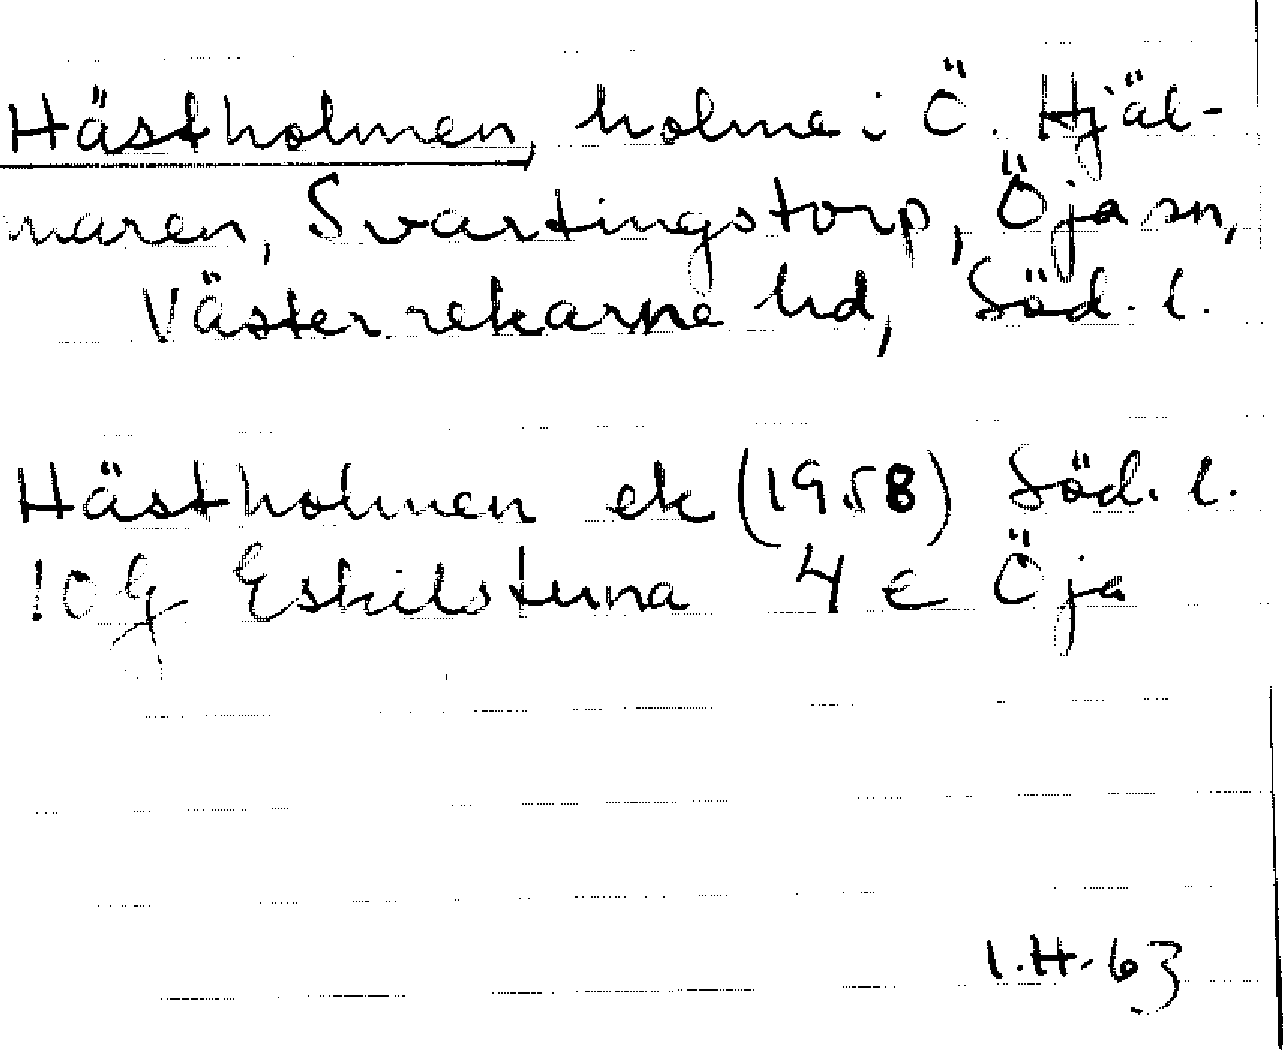 Hästholmen, holme i Ö. Hjäl-
maren, Svartingstorp, Öja sn,
Västerrekarne hd, Söd. l.
Hästholmen ek (1958) Söd. l.
10G Eskilstuna 4 e Öja
I.H. 63